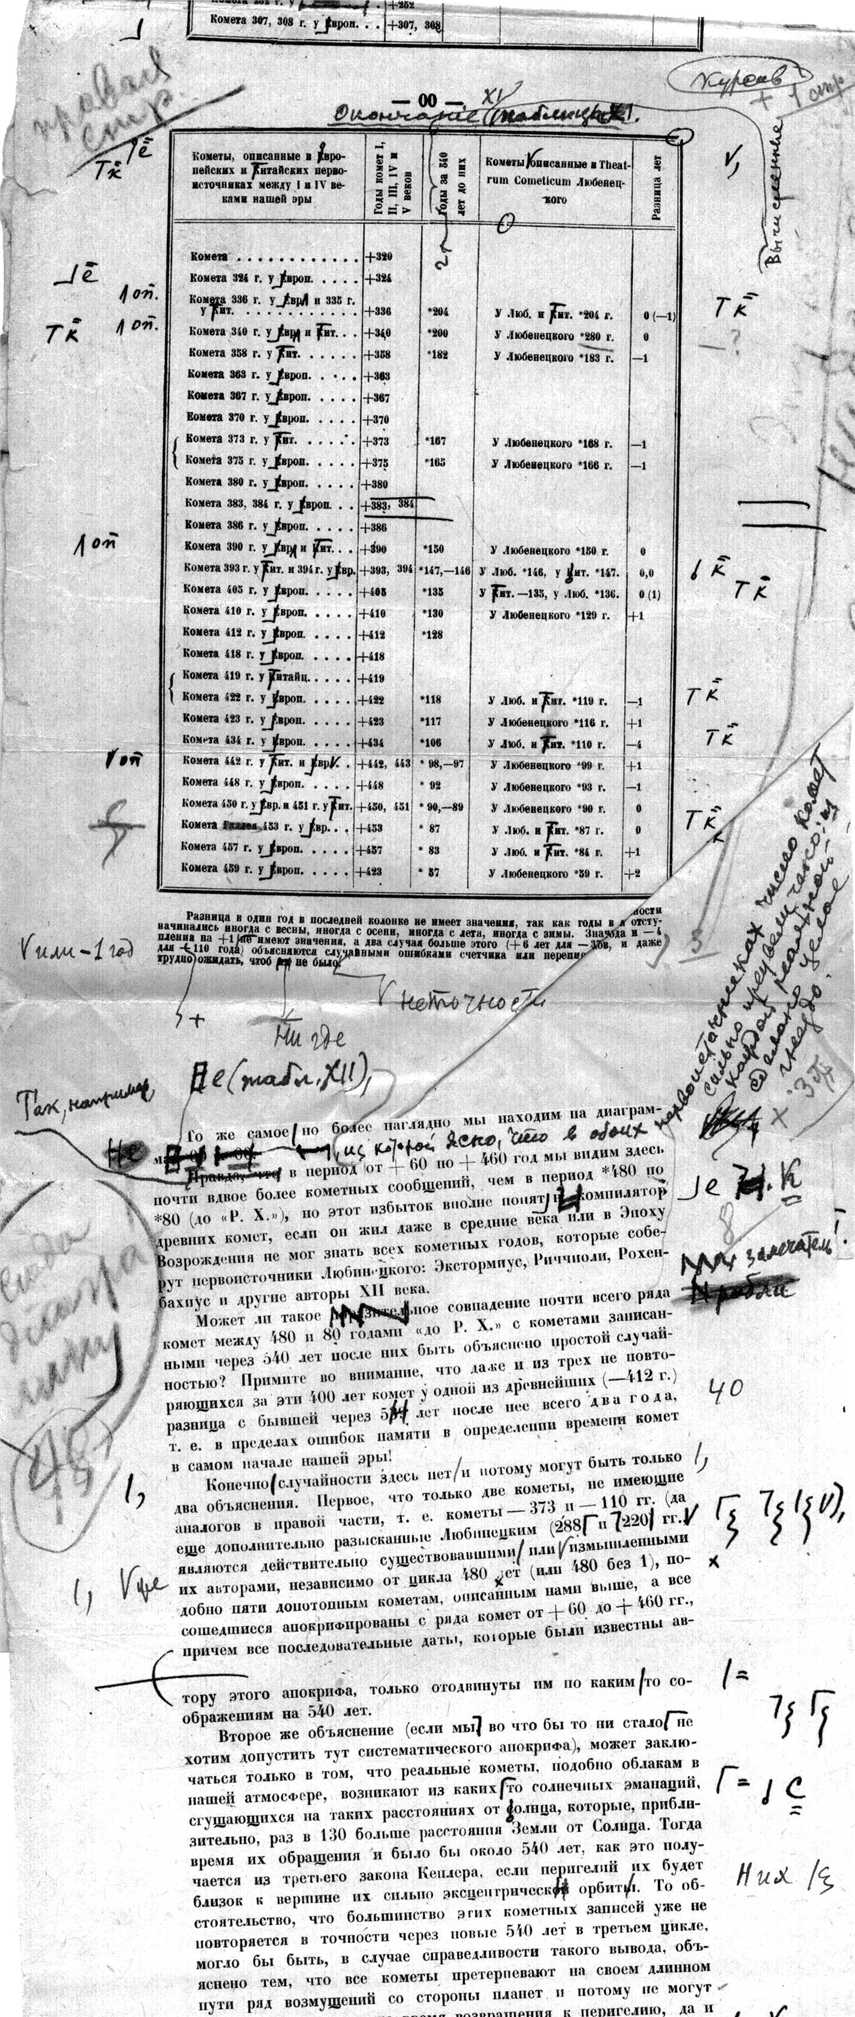 Комета 307, 308 г. у Европ. . . +307, 308
правая
стр.
Курсив
+ 1 стр
— 00 —
Окончание таблицы XI.
Вычисленные
Кометы, описанные в Евро-
пейских и Китайских перво-
источниках между I и IV ве-
ками нашей эры
Годы комет I,
II, III, IV и
V веков
Годы за 540
лет до них
Кометы описанные в Theat-
rum Cometicum Любенец-
кого
Разница лет
Комета . . . . . . . . . . . . +320
Комета 324 г. у Европ. . . . . +324
Комета 336 г. у Евр. и 335 г.
у Кит. . . . . . . . . . . . +336 *204 У Люб. и Кит. *204 г. 0 (—1)
Комета 340 г. у Евр. и Кит. . . +340 *200 У Любенецкого *280 г. 0
Комета 358 г. у Кит. . . . . . +358 *182 У Любенецкого *183 г. —1
Комета 363 г. у Европ. . . . . +363
Комета 367 г. у Европ. . . . . +367
Комета 370 г. у Европ. . . . . +370
Комета 373 г. у Кит. . . . . . +373 *167 У Любенецкого *168 г. —1
Комета 375 г. у Европ. . . . . +375 *165 У Любенецкого *166 г. —1
Комета 380 г. у Европ. . . . . +380
Комета 383, 384 г. у Европ. . . +383, 384
Комета 386 г. у Европ. . . . . +386
Комета 390 г. у Евр. и Кит. . . +390 *150 У Любенецкого *150 г. 0
Комета 393 г. у Кит. и 394 г. у Евр. +393, 394 *147,—146 У Люб. *146, у Кит. *147. 0,0
Комета 405 г. у Европ. . . . . +405 *135 У Кит. —135, у Люб. *136. 0 (1)
Комета 410 г. у Европ. . . . . +410 *130 У Любенецкого *129 г. +1
Комета 412 г. у Европ. . . . . +412 *128
Комета 418 г. у Европ. . . . . +418
Комета 419 г. у Китайц. . . . . +419
Комета 422 г. у Европ. . . . . +422 *118 У Люб. и Кит. *119 г. —1
Комета 423 г. у Европ. . . . . +423 *117 У Любенецкого *116 г. +1
Комета 434 г. у Европ. . . . . +434 *106 У Люб. и Кит. *110 г. —4
Комета 442 г. у Кит. и Евр. . +442, 443 * 98,—97 У Любенецкого *99 г. +1
Комета 448 г. у Европ. . . . . +448 * 92 У Любенецкого *93 г. —1
Комета 450 г. у Евр. и 451 г. у Кит. +450, 451 * 90,—89 У Любенецкого *90 г. 0
Комета Галлея 453 г. у Евр. . . +453 * 87 У Люб. и Кит. *87 г. 0
Комета 457 г. у Европ. . . . . +457 * 83 У Люб. и Кит. *84 г. +1
Комета 459 г. у Европ. . . . . +423 * 57 У Любенецкого *59 г. +2
Разница в один год в последней колонке не имеет значения, так как годы в
начинались иногда с весны, иногда с осени, иногда с лета, иногда с зимы.
пления на +1 не имеют значения, а два случая больше этого (+6 лет для
для —110 года) объясняются случайными ошибками счетчика или
трудно ожидать, чтоб их не было.
V или —1 год
V неточности
Ни где
Не (табл. XII),
Так, например,
То же самое но более наглядно мы находим на диаграм-
из которой ясно, что в обоих
первоисточниках число комет
сильно преувеличено: из
каждой реальной
сделано целое
гнездо.
Правда, что в период от +60 по +460 год мы видим здесь
почти вдвое более кометных сообщений, чем в период *480 по
*80 (до «Р. Х.»), но этот избыток вполне понятен компилятор
древних комет, если он жил даже в средние века или в Эпоху
Возрождения не мог знать всех кометных годов, которые собе-
рут первоисточники Любинецкого: Экстормиус, Риччиоли, Рохен-
бахиус и другие авторы XII века.
замечатель!
Сюда
диаграмму
Может ли такое поразительное совпадение почти всего ряда
комет между 480 и 80 годами «до Р. Х.» с кометами записан-
ными через 540 лет после них быть объяснено простой случай-
ностью? Примите во внимание, что даже и из трех не повто-
ряющихся за эти 400 лет комет у одной из древнейших (—412 г.)
разница с бывшей через 544 лет после нее всего два года,
т. е. в пределах ошибок памяти в определении времени комет
в самом начале нашей эры!
40
Конечно случайности здесь нет и потому могут быть только
два объяснения. Первое, что только две кометы, не имеющие
аналогов в правой части, т. е. кометы —373 и —110 гг. (да
еще дополнительно разысканные Любинецким (288 и 220) гг.
являются действительно существовавшими или измышленными
их авторами, независимо от цикла 480 лет (или 480 без 1), по-
добно пяти допотопным кометам, описанным нами выше, а все
сошедшиеся апокрифированы с ряда комет от +60 до +460 гг.,
причем все последовательные даты, которые были известны ав-
тору этого апокрифа, только отодвинуты им по каким то со-
ображениям на 540 лет.
Второе же объяснение (если мы во что бы то ни стало не
хотим допустить тут систематического апокрифа), может заклю-
чаться только в том, что реальные кометы, подобно облакам в
нашей атмосфере, возникают из каких то солнечных эманаций,
сгущающихся на таких расстояниях от солнца, которые, прибли-
зительно, раз в 130 больше расстояния Земли от Солнца. Тогда
время их обращения и было бы около 540 лет, как это полу-
чается из третьего закона Кеплера, если перигелий их будет
близок к вершине их сильно эксцентрической орбиты. То об-
стоятельство, что большинство этих кометных записей уже не
повторяется в точности через новые 540 лет в третьем цикле,
могло бы быть, в случае справедливости такого вывода, объ-
яснено тем, что все кометы претерпевают на своем длинном
пути ряд возмущений со стороны планет и потому не могут
время возвращения к перигелию, да и